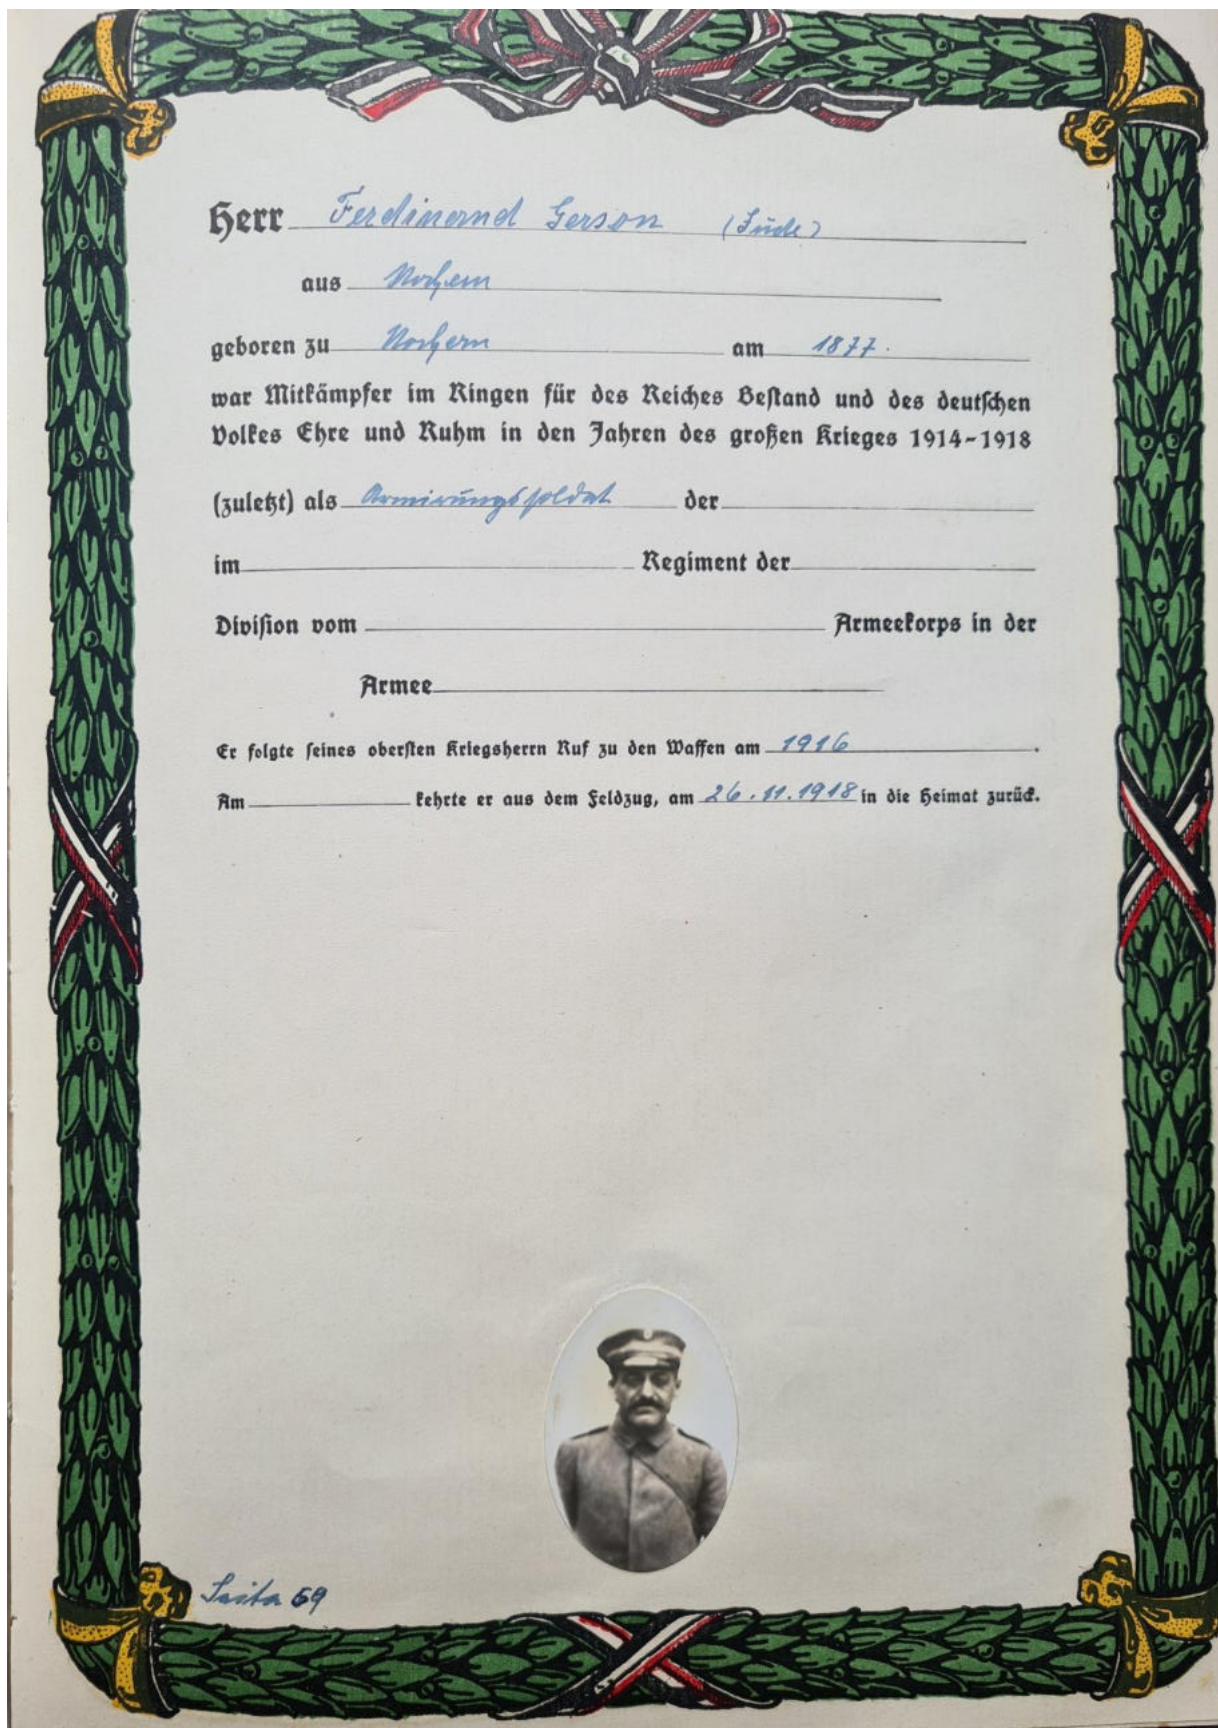 Herr Ferdinand Gerson (Jude)
aus Nochern
geboren zu Nochern am 1877.
war Mitkämpfer im Ringen für des Reiches Bestand und des deutschen
Volkes Ehre und Ruhm in den Jahren des großen Krieges 1914-1918
(zuletzt) als Armirungssoldat der
im Regiment der
Division vom Armeekorps in der
Armee
Er folgte seines obersten Kriegsherrn Ruf zu den Waffen am 1916.
Am kehrte er aus dem Feldzug, am 26.11.1918 in die Heimat zurück.
Seite 69